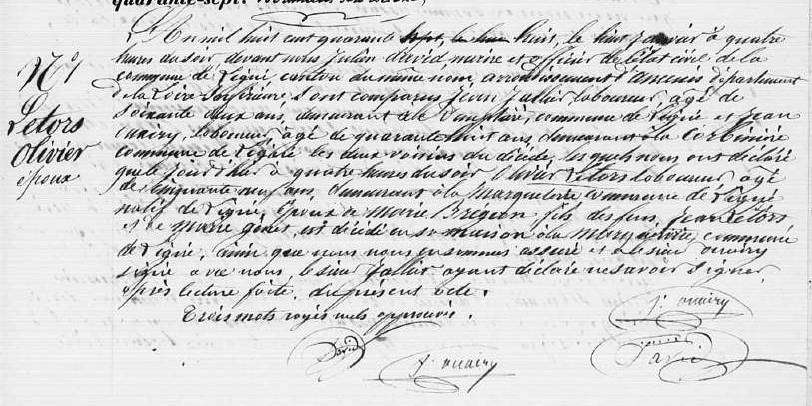 quarante-sept.
L'An mil huit cent quarante sept, le huit huit, le huit janvier à quatre
heures du soir devant nous Julien David, maire et officier de l'état civil de la
commune de Ligné, canton du même nom, arrondissement d'Ancenis département
de la Loire Inférieure, sont comparus Jean Jallier, laboureur, âgé de
soixante deux ans, demeurant à la commune de Ligné et Jean
laboureur, âgé de quarante huit ans, demeurant à la
commune de Ligné les deux voisins du décédé, lesquels nous ont déclaré
que le jour d'hier à quatre heures du soir Olivier Letors laboureur, âgé
de cinquante neuf ans, demeurant à la Marqueterie commune de Ligné
natif de Ligné, époux de Marie fils des feus, Jean Letors
et de Marie est décédé en sa maison à la commune
de Ligné, ainsi que nous nous en sommes assuré et le sieur
signé avec nous, le sieur ayant déclaré ne savoir signer
après lecture faite, du présent acte.
Trois mots rayés nuls approuvée.
N° 1
Letors
Olivier
époux
David
David